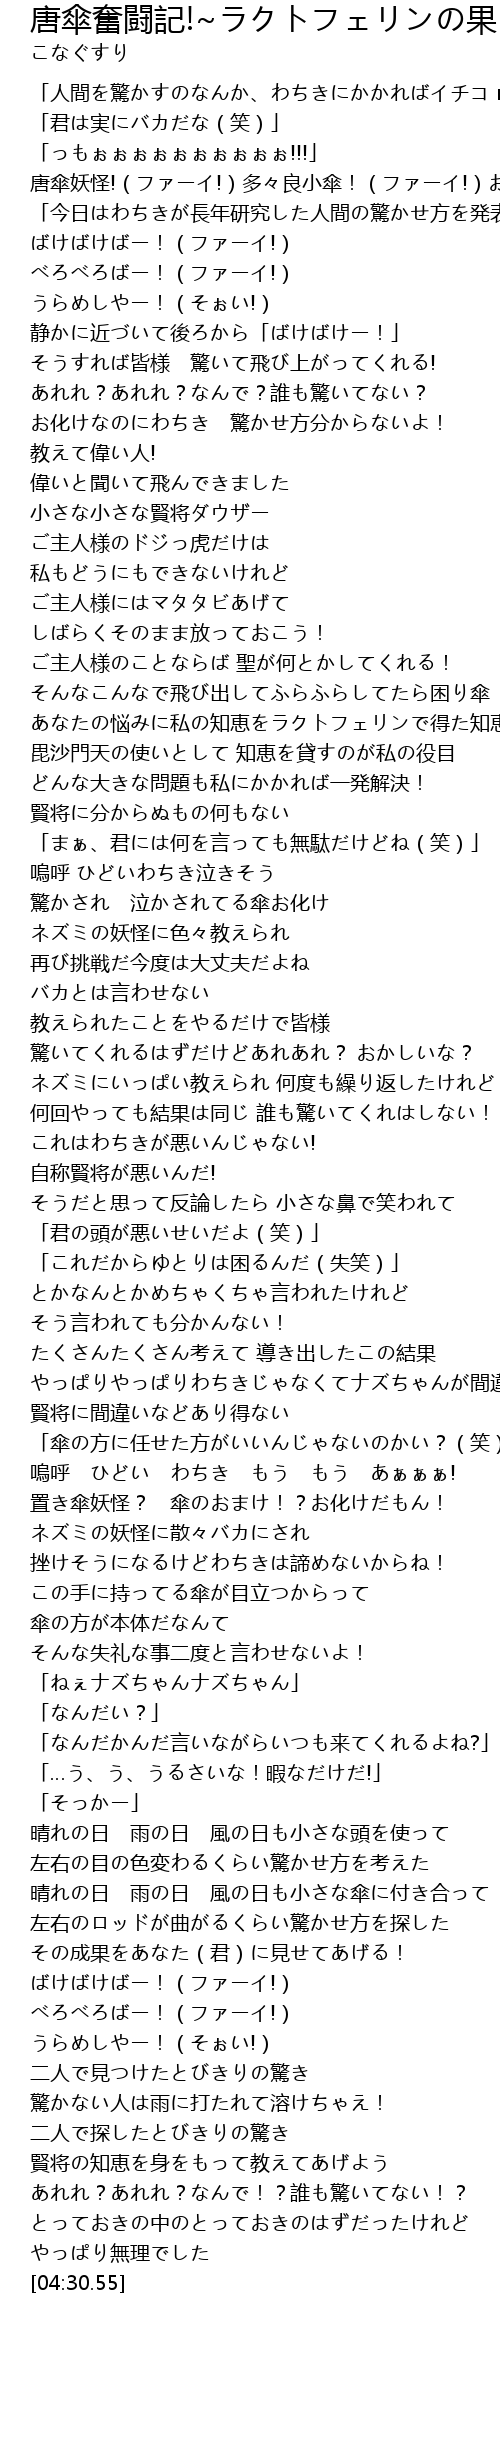 唐傘奮闘記!~ラクトフェリンの果
こなぐすり
「人間を驚かすのなんか、わちきにかかればイチコ
「君は実にバカだな（笑）」
「っもぉぉぉぉぉぉぉぉぉぉ!!!」
唐傘妖怪!（ファーイ!）多々良小傘！（ファーイ!）お
「今日はわちきが長年研究した人間の驚かせ方を発表
ばけばけばー！（ファーイ!）
べろべろばー！（ファーイ!）
うらめしやー！（そぉい!）
静かに近づいて後ろから「ばけばけー！」
そうすれば皆様　驚いて飛び上がってくれる!
あれれ？あれれ？なんで？誰も驚いてない？
お化けなのにわちき　驚かせ方分からないよ！
教えて偉い人!
偉いと聞いて飛んできました
小さな小さな賢将ダウザー
ご主人様のドジっ虎だけは
私もどうにもできないけれど
ご主人様にはマタタビあげて
しばらくそのまま放っておこう！
ご主人様のことならば 聖が何とかしてくれる！
そんなこんなで飛び出してふらふらしてたら困り傘
あなたの悩みに私の知恵をラクトフェリンで得た知恵
毘沙門天の使いとして 知恵を貸すのが私の役目
どんな大きな問題も私にかかれば一発解決！
賢将に分からぬもの何もない
「まぁ、君には何を言っても無駄だけどね（笑）」
嗚呼 ひどいわちき泣きそう
驚かされ　泣かされてる傘お化け
ネズミの妖怪に色々教えられ
再び挑戦だ今度は大丈夫だよね
バカとは言わせない
教えられたことをやるだけで皆様
驚いてくれるはずだけどあれあれ？ おかしいな？
ネズミにいっぱい教えられ 何度も繰り返したけれど
何回やっても結果は同じ 誰も驚いてくれはしない！
これはわちきが悪いんじゃない!
自称賢将が悪いんだ!
そうだと思って反論したら 小さな鼻で笑われて
「君の頭が悪いせいだよ（笑）」
「これだからゆとりは困るんだ（失笑）」
とかなんとかめちゃくちゃ言われたけれど
そう言われても分かんない！
たくさんたくさん考えて 導き出したこの結果
やっぱりやっぱりわちきじゃなくてナズちゃんが間違
賢将に間違いなどあり得ない
「傘の方に任せた方がいいんじゃないのかい？（笑）
嗚呼　ひどい　わちき　もう　もう　あぁぁぁ!
置き傘妖怪？　傘のおまけ！？お化けだもん！
ネズミの妖怪に散々バカにされ
挫けそうになるけどわちきは諦めないからね！
この手に持ってる傘が目立つからって
傘の方が本体だなんて
そんな失礼な事二度と言わせないよ！
「ねぇナズちゃんナズちゃん」
「なんだい？」
「なんだかんだ言いながらいつも来てくれるよね?」
「...う、う、うるさいな！暇なだけだ!」
「そっかー」
晴れの日　雨の日　風の日も小さな頭を使って
左右の目の色変わるくらい驚かせ方を考えた
晴れの日　雨の日　風の日も小さな傘に付き合って
左右のロッドが曲がるくらい驚かせ方を探した
その成果をあなた（君）に見せてあげる！
ばけばけばー！（ファーイ!）
べろべろばー！（ファーイ!）
うらめしやー！（そぉい!）
二人で見つけたとびきりの驚き
驚かない人は雨に打たれて溶けちゃえ！
二人で探したとびきりの驚き
賢将の知恵を身をもって教えてあげよう
あれれ？あれれ？なんで！？誰も驚いてない！？
とっておきの中のとっておきのはずだったけれど
やっぱり無理でした
[04:30.55]